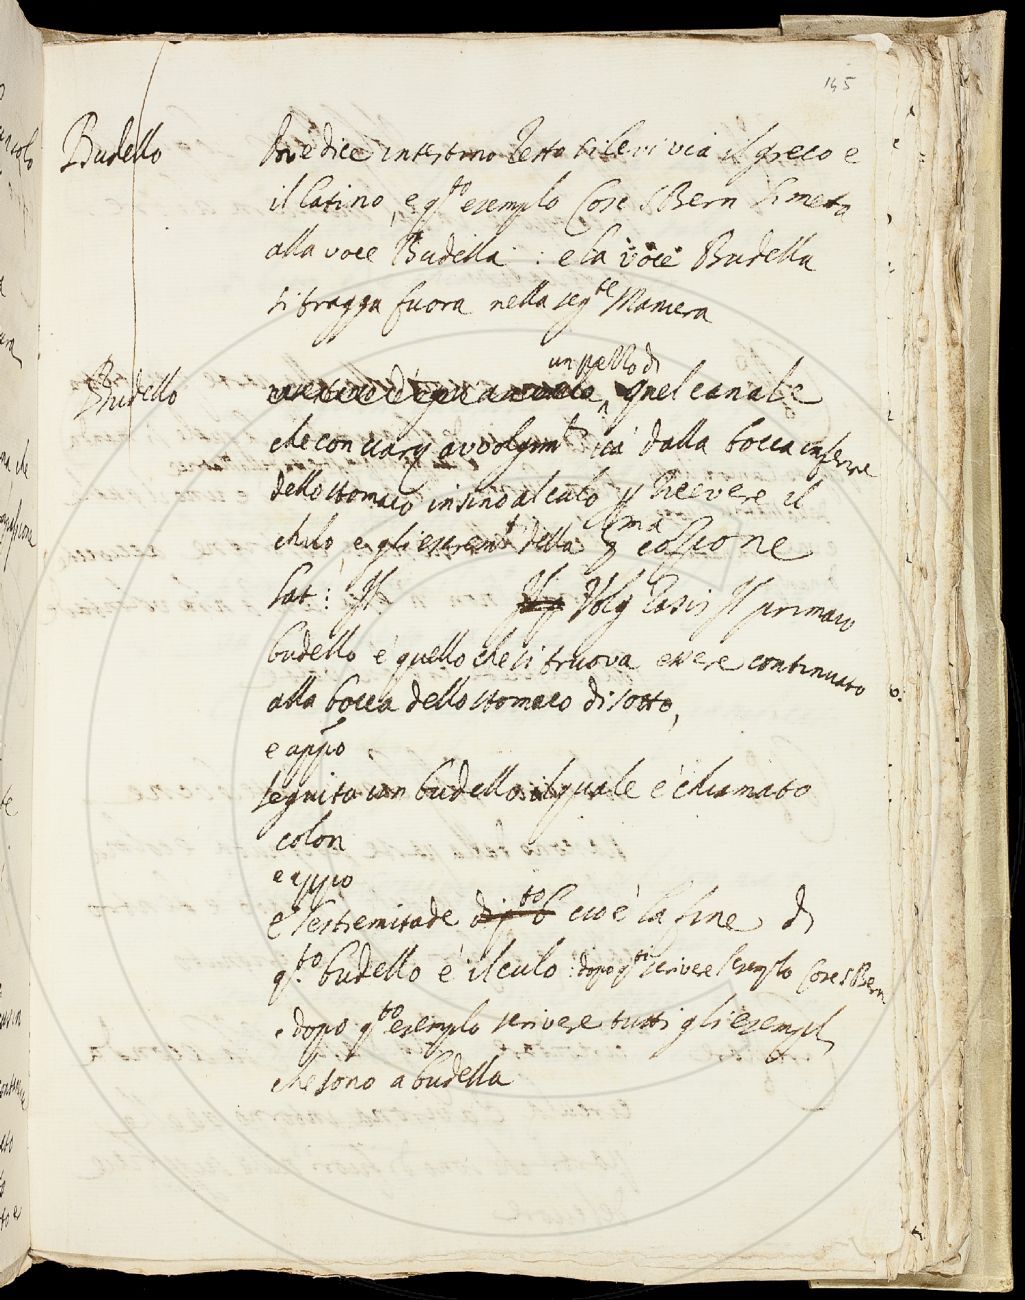 145
Budello
ove dice intestino Resto si levi via il greco e
il latino, e q.to esempio Cose S Bern si metta
alla voce Budella : e la voce Budella
si tragga fuora nella seg.te Maniera
un pezzo di
Budello
quel canale
che con varj avvolgim.ti va dalla bocca inferre
dello stomaco insino al culo p ricevere il
chilo e gli escrem.ti della p.ma cozione
Lat: Gr Volg Rasis Il primaio
budello è quello che si truova essere continuato
alla bocca dello stomaco di sotto,
e app.o
seguita un budello il quale è chiamato
colon
e appo
e l'estremitade cioè la fine di
q.to budello è il culo : dopo q.to scrivere l'esemplo Cose S Bern
e dopo q.to esemplo scrivere tutti gli esempli
che sono a budella